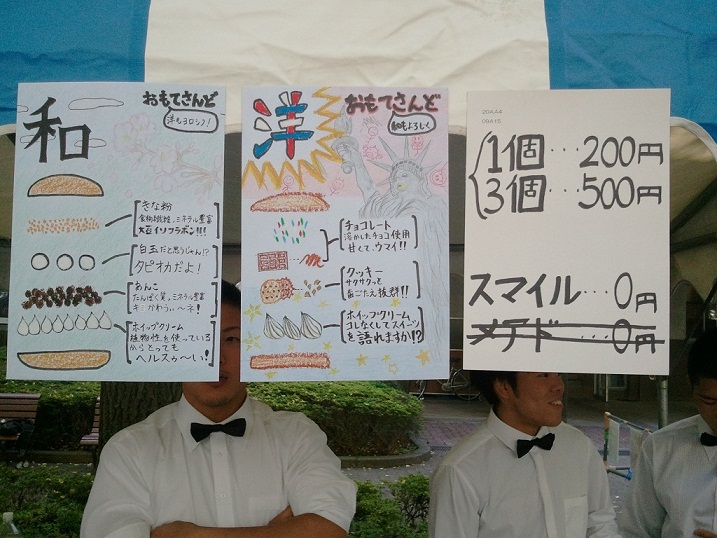 和
おもてさんど
洋もヨロシク!
きな粉
食物繊維、ミネラル豊富
大豆イソフラボン!!!
白玉だと思うじゃん!?
タピオカだよ!
あんこ
たんぱく質、ミネラル豊富
ホイップクリーム
植物性を使っている
からとっても
ヘルスゥ〜い!
洋
おもてさんど
和もよろしく
チョコレート
溶かしたチョコ使用
甘くて、ウマイ!!
クッキー
サクサクっと
歯ごたえ抜群!!
ホイップクリーム
コレなくしてスイーツ
を語れますか!?
1個…200円
3個…500円
スマイル…0円
メアド…0円